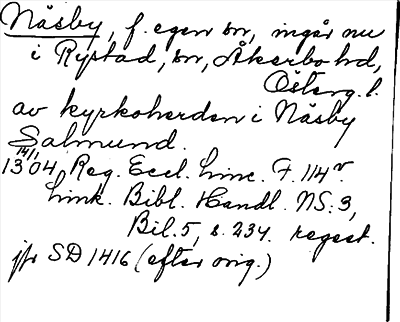 Näsby, f. egen sn, ingår nu
i Rystad, sn, Åkerbo hd,
Österg. l.
av kyrkoherden i Näsby
Salmund.
14/1
1304 Reg. Eccl. Linc. F. 114v.
Link. Bibl. Handl. NS: 3,
Bil. 5, s. 234. regest.
jfr SD 1416 (efter orig.)